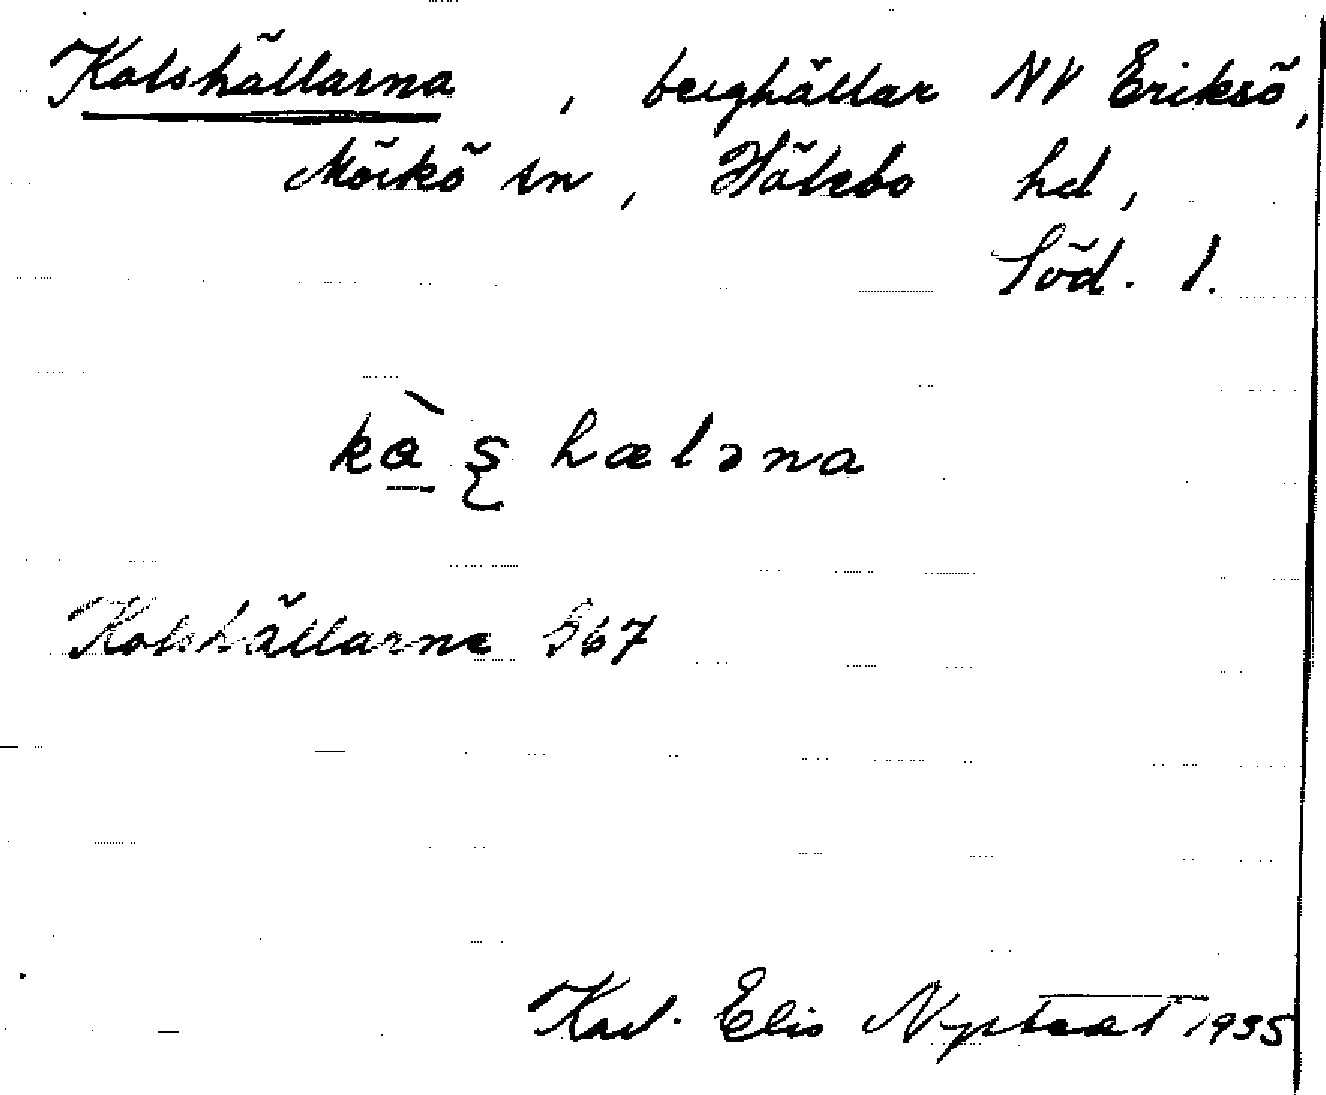 Kolshällarna, berghällar NV Eriksö,
Mörkö sn, Hölebo hd,
Söd. l.
kàʂhæləna
Kolshällarna 367
Karl-Elis Nystedt 1935